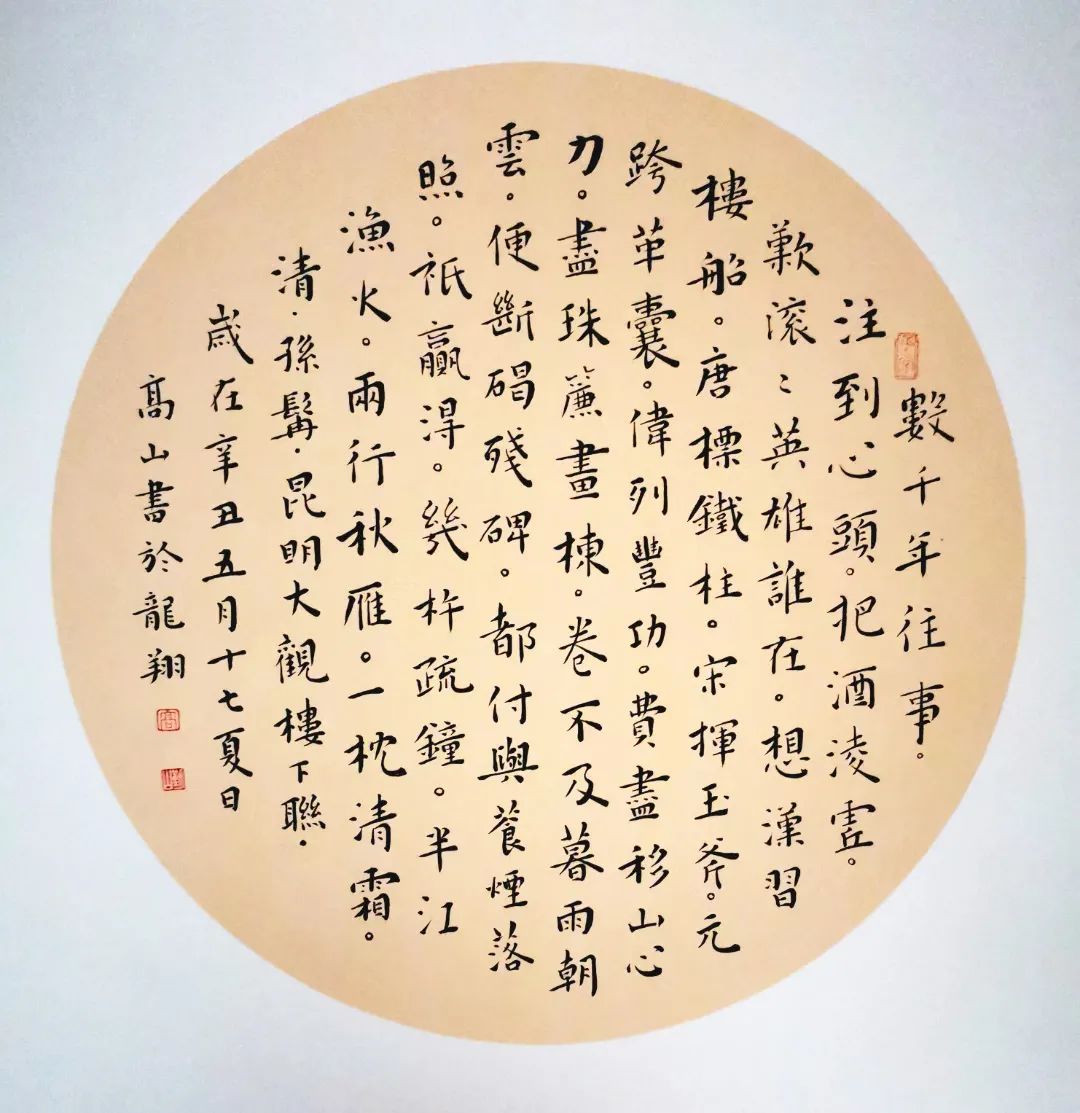 數千年往事。
注到心頭。把酒淩虗。
歎滚〻英雄誰在。想漢習
樓船。唐標鐵柱。宋揮玉斧。元
跨革囊。偉列豐功。費盡移山心
力。盡珠簾畫棟。卷不及暮雨朝
雲。便斷碣殘碑。都付與蒼煙落
照。祇贏得。幾杵疏鐘。半江
漁火。兩行秋雁。一枕清霜。
清·孫髯·昆明大觀樓下聯·
歲在辛丑五月十七夏日
髙山書於龍翔